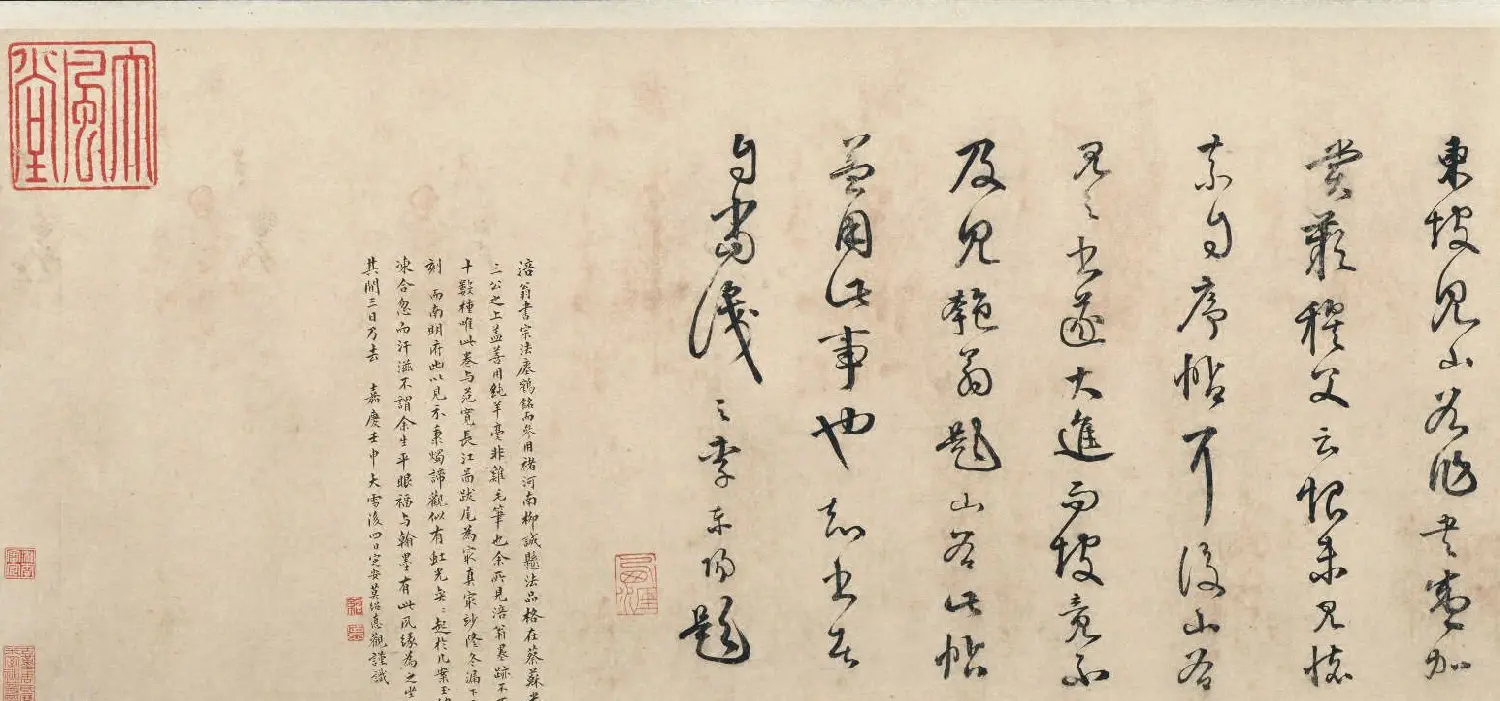 東坡見山谷作書輒加
賞歎穆父云恨未見懷
素自序帖耳後山谷
見之書遂大進而坡竟不
及見匏翁題山谷此帖
蓋用此事也知書者
自當識之李東陽題
涪翁書宗法瘞鶴銘而參用褚河南柳誠懸法品格在蔡蘇米
三公之上盖善用純羊毫非雞毛筆也余所見涪翁墨跡不
十數種唯此卷与范寬長江啚跋尾為最真最妙隆冬漏下
刻而南明府出以見示秉燭諦觀似有虹光起於几案玉
凍合忽而汗滋不謂余生平眼福与翰墨有此夙緣為之坐
其間三日乃去 嘉慶壬申大雪後四日定安莫紹惪觀謹識
大風堂